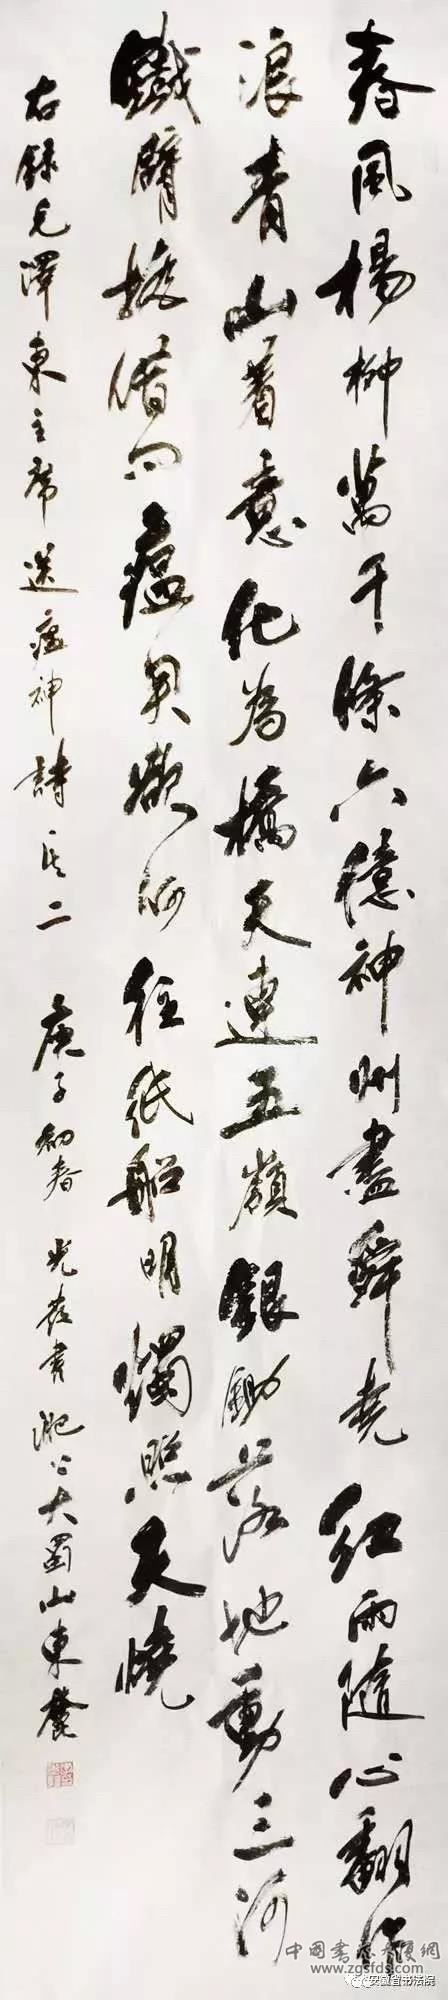 春風楊柳萬千條六億神州盡舜尭紅雨隨心翻作
浪青山着意化為橋天連五嶺銀鋤落地動三河
鐵臂搖借问瘟君欲何往纸船明燭照天燒
右録毛澤東主席送瘟神詩其二 庚子初春 光春書 大蜀山東麓
中國書法大厦網
www.zgsfds.com
安徽省书法院